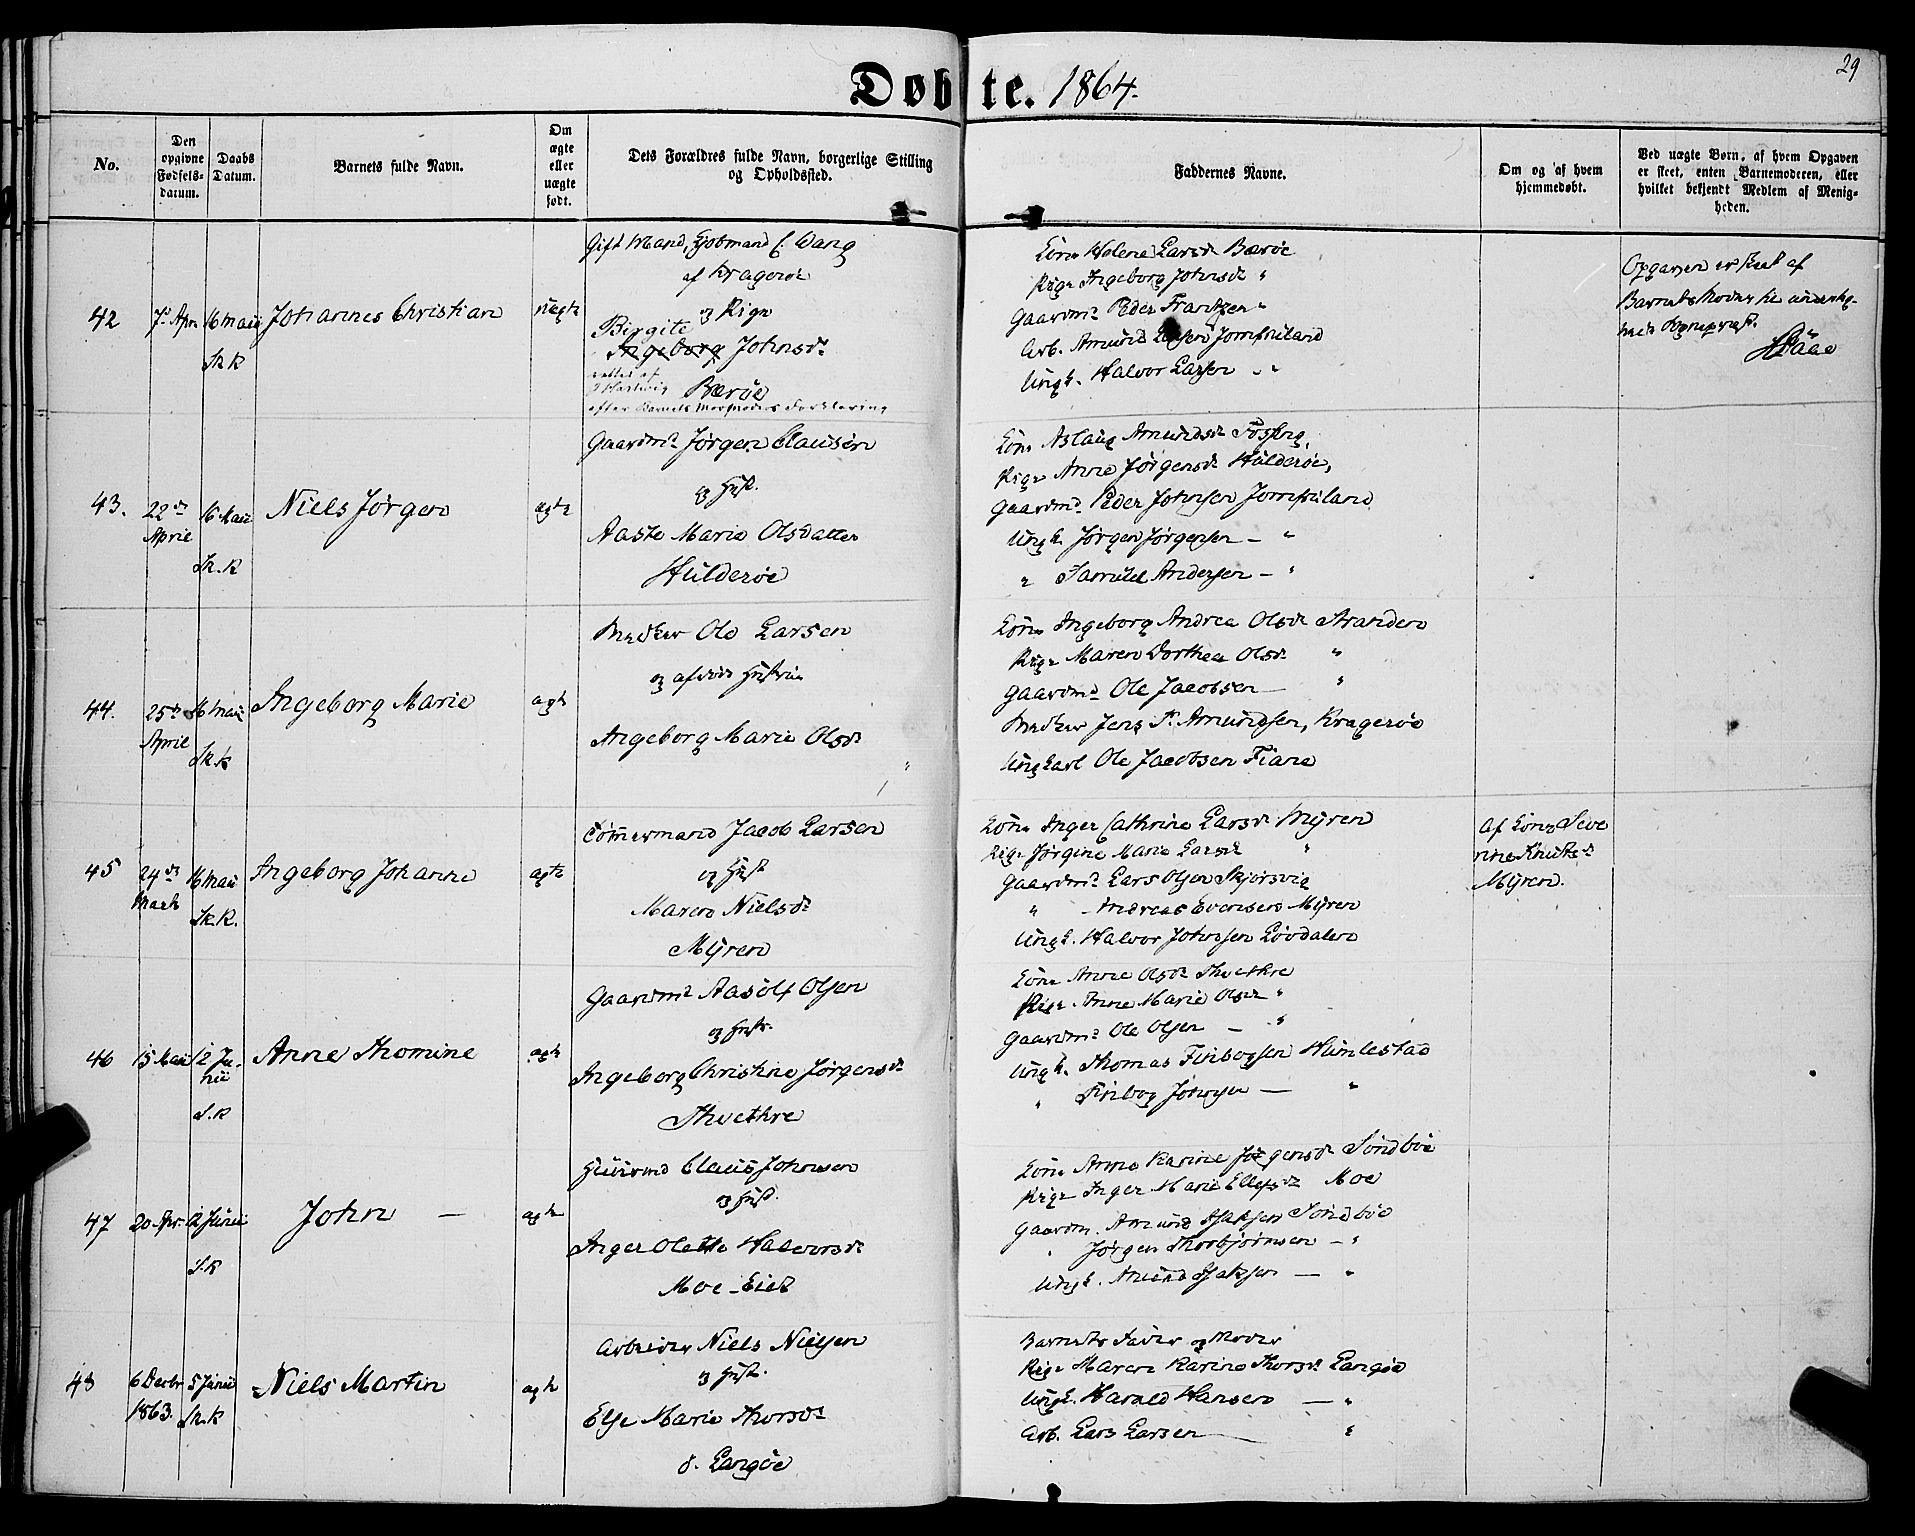 29
Døbte. 1864.
No.
Den opgivne Fødsels-datum.
Daabs Datum.
Barnets fulde Navn.
Om ægte eller uægte født.
Dets Forældres fulde Navn, borgerlige Stilling og Opholdssted.
Faddernes Navne.
Om og af hvem hjemmedøbt.
Ved uægte Børn, af hvem Opgaven er skeet, enten Barnemoderen, eller hvilket bekjendt Medlem af Menigheden.
42
7de Apr.
16 Maii
Sk K
Johannes Christian
uægte
Gift Mand, Kjøbmand C. Wang
af Kragerøe
og Pige
Birgite
Ingeborg Johnsdr
rettet af
J Hartwig
Barøe
efter Barnets Mormoders Forklaring
Kone Helene Larsdr Barøe
Pige Ingeborg Johnsdr "
Gaardmd Peder Frantzen "
Arb. Amund Larsen Jomfruland
Ungk. Halvor Larsen " "
Opgaven er skeet af
Barnets Moder til
43.
22de
April
16 Maii
Sk. K
Niels Jørgen
ægte
Gaardmd Jørgen Clausen
og Hust.
Aaste Maria Olsdatter
Hulderøe
Kone Aslaug Amundsdr
Pige Anne Jørgensdr Hulderøe,
Gaardmd Peder Johnsen Jomfruland
Ungk. Jørgen Jørgensen – "
" Samuel Andersen – "
44.
25de
April
16 Maii
Sk K
Ingeborg Marie
ægte
Snedker Ole Larsen
og afdøde Hustru
Ingeborg Marie Olsdr
Kone Ingeborg Andrea Olsdr Stranden
Pige Maren Dorthea Olsdr "
Gaardmd Ole Jacobsen – "
Snedker Jens P. Amundsen, Kragerøe
Ungkarl Ole Jacobsen Fiane
45
24de
Marts
16 Maii
Sk. K.
Ingeborg Johanne
ægte
Tømmermand Jacob Larsen
og Hust
Maren Nielsdr
Myren
Kone Inger Cathrine Larsdr Myren
Pige Jørgine Marie Larsdr "
Gaardmd Lars Olsen Skjørsvig
" Andreas Evensen Myren
Ungk. Halvor Johnsen Løvdalen
Af Kone Seve
rine Knutsdr
Myren.
46
15 Maii
12 Ju-
nii
S. K
Anne Thomine
ægte
Gaardmd Aasolf Olsen
og Hustr.
Ingeborg Christine Jørgensdr
Thvethre
Kone Anne Olsdr Thvethre
Pige Anne Marie Olsdr "
Gaardmd Ole Olsen – "
Ungk. Thomas Finbogsen Humlestad
" Finbog Johnsen – "
47
20 Apr
12 Junii
S. K
John –
ægte
Huusmd Claus Johnsen
og Hust.
Inger Olette Halvorsdr
Moe-Eiet
Kone Anne Karine Jørgensdr Søndbøe
Pige Inger Marie Ellefsdr Moe
Gaardm. Amund Isaksen Søndbøe
" Jørgen Thorbjørnsen – "
Ungk. Amund Isaksen – "
48
6 Decbr
1863.
5 Junii
Sk. K
Niels Martin
ægte
Arbeider Niels Nielsen
og Hust.
Else Marie Thorsdr
ø. Langøe
Barnets Fader og Moder
Pige Maren Karine Thorsdr Langøe
Ungk. Harald Hansen – "
Arb. Lars Larsen "